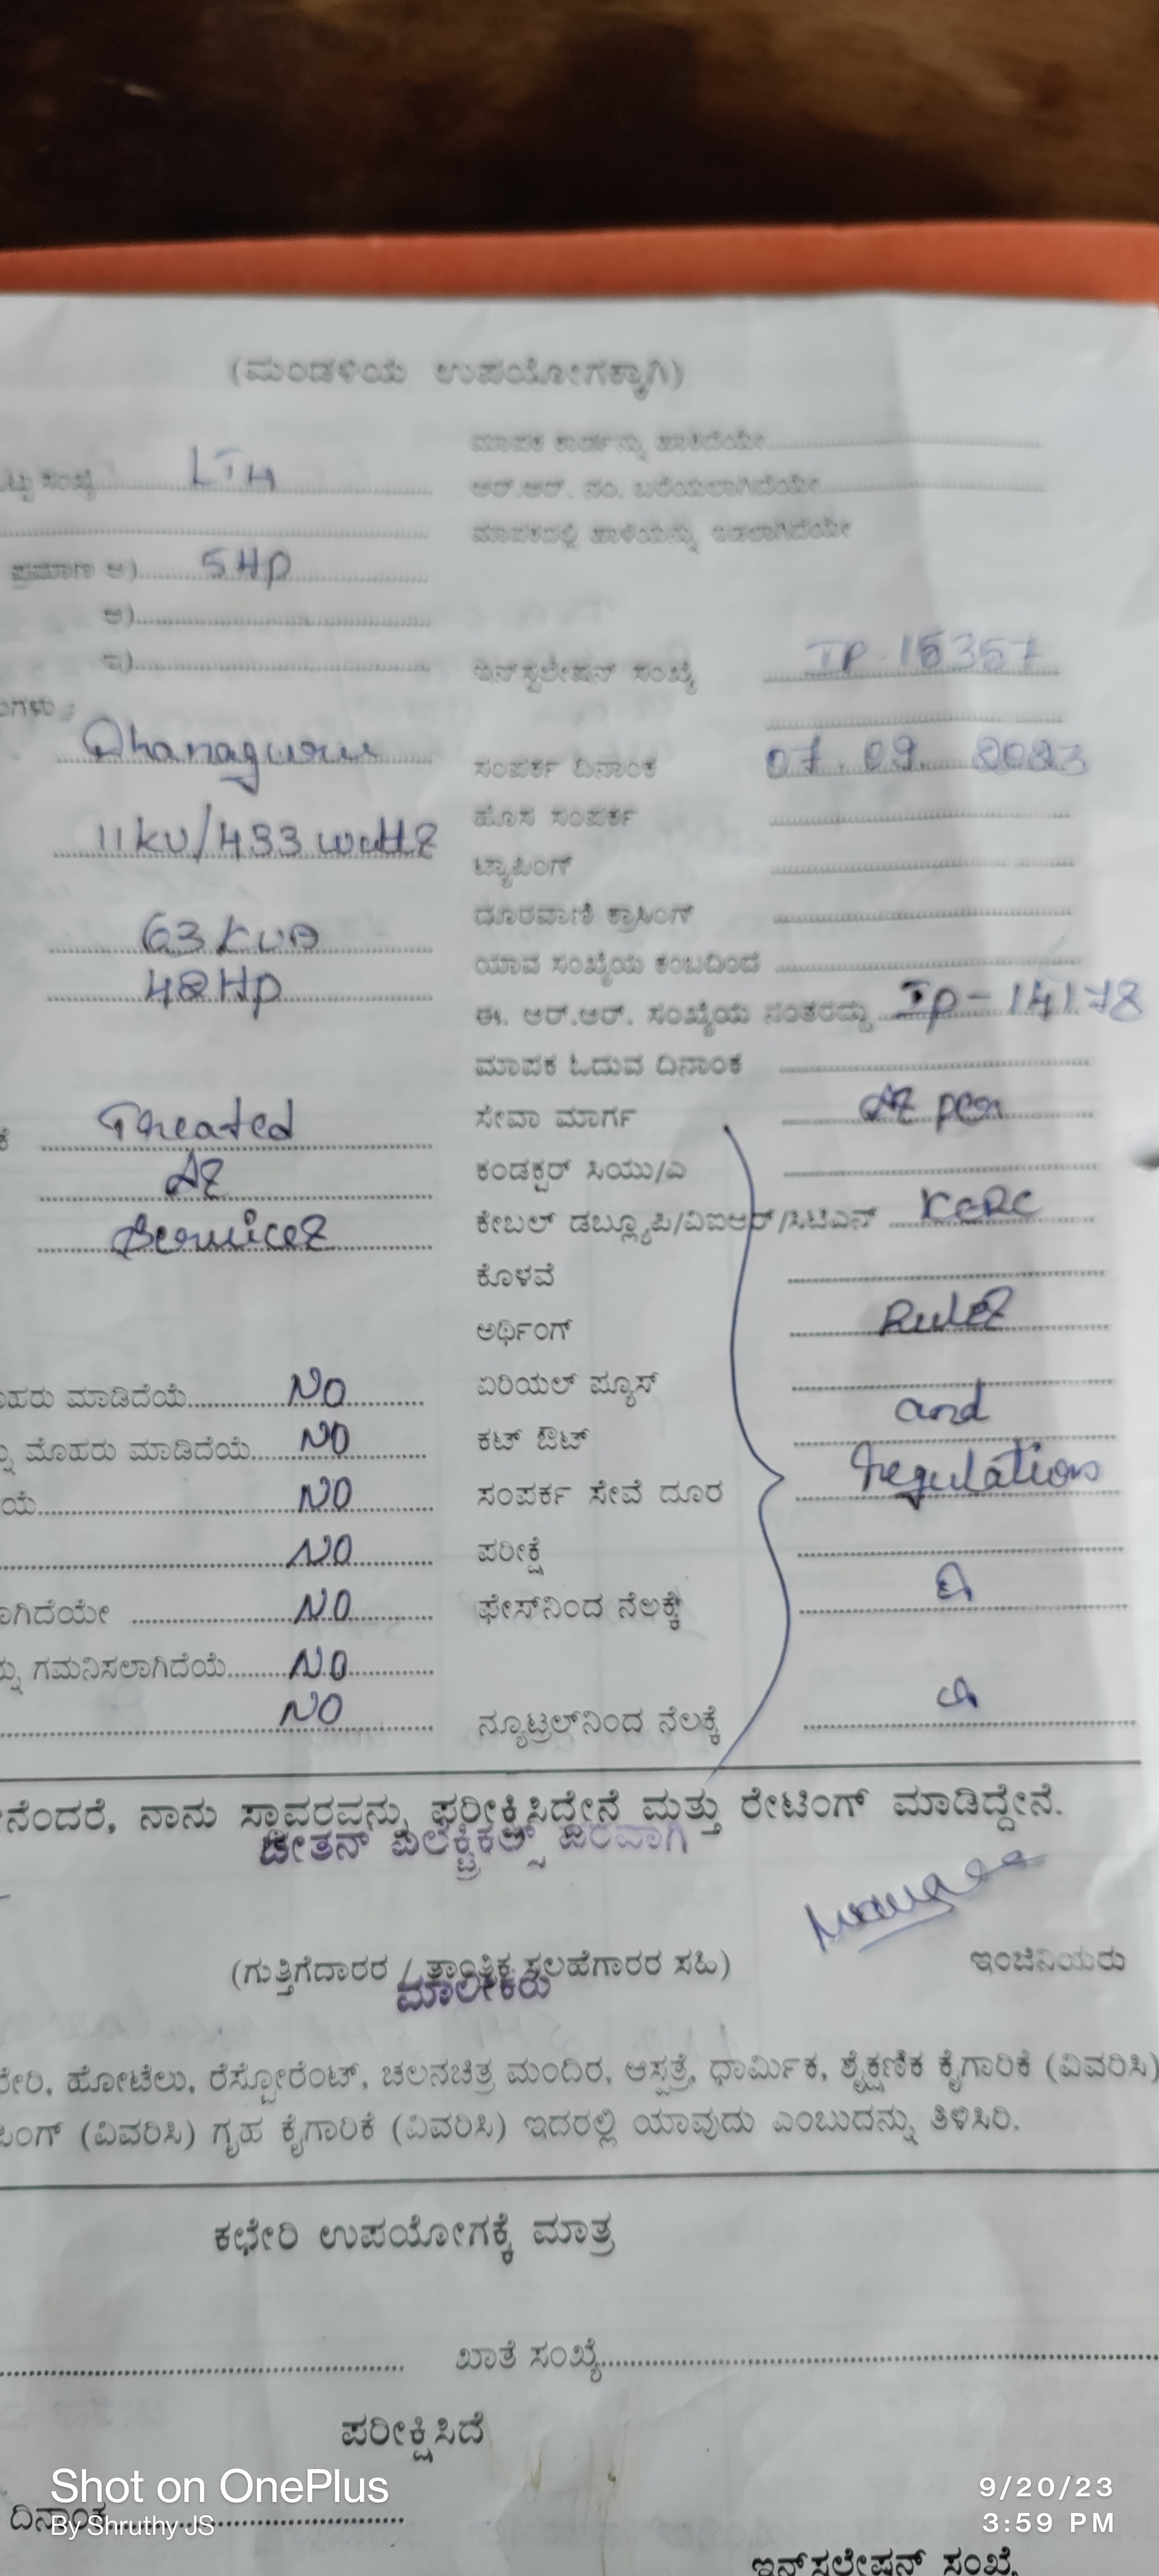 (ಮಂಡಳಿಯ ಉಪಯೋಗಕ್ಕಾಗಿ)
ಮಾಪಕ ಕಾರ್ಡನ್ನು ಹಾಕಿದೆಯೇ
ಸಂಖ್ಯೆ LTH
ಆರ್.ಆರ್. ನಂ. ಬರೆಯಲಾಗಿದೆಯೇ
ಮಾಪಕದಲ್ಲಿ ಹಾಳೆಯನ್ನು ಇಡಲಾಗಿದೆಯೇ
ಪ್ರಮಾಣ ಅ) 5 Hp
ಆ)
ಇ)
ಇನ್‌ಸ್ಟಲೇಷನ್ ಸಂಖ್ಯೆ IP-15357
Dhanaguru
ಸಂಪರ್ಕ ದಿನಾಂಕ 07.09.2023
ಹೊಸ ಸಂಪರ್ಕ
11kv/433 watts
ಟ್ಯಾಪಿಂಗ್
ದೂರವಾಣಿ ಕ್ರಾಸಿಂಗ್
63 kva
ಯಾವ ಸಂಖ್ಯೆಯ ಕಂಬದಿಂದ
48 Hp
ಈ. ಆರ್.ಆರ್. ಸಂಖ್ಯೆಯ ನಂತರದ್ದು Ip-14178
ಮಾಪಕ ಓದುವ ದಿನಾಂಕ
Treated
ಸೇವಾ ಮಾರ್ಗ As per
As
ಕಂಡಕ್ಟರ್ ಸಿಯು/ಎ
Services
ಕೇಬಲ್ ಡಬ್ಲ್ಯೂಪಿ/ವಿಐಆರ್/ಸಿಟಿಎಸ್ KERC
ಕೊಳವೆ
ಅರ್ಥಿಂಗ್ Rules
ಮಾಡಿದೆಯೆ NO
ಏರಿಯಲ್ ಪ್ಯೂಸ್
and
ಮೊಹರು ಮಾಡಿದೆಯೆ NO
ಕಟ್ ಔಟ್
NO
ಸಂಪರ್ಕ ಸೇವೆ ದೂರ regulation
NO
ಪರೀಕ್ಷೆ
NO
ಫೇಸ್‌ನಿಂದ ನೆಲಕ್ಕೆ
ಗಮನಿಸಲಾಗಿದೆಯೆ NO
NO
ನ್ಯೂಟ್ರಲ್‌ನಿಂದ ನೆಲಕ್ಕೆ
ನಾನು ಸ್ಥಾವರವನ್ನು ಪರೀಕ್ಷಿಸಿದ್ದೇನೆ ಮತ್ತು ರೇಟಿಂಗ್ ಮಾಡಿದ್ದೇನೆ.
ಚೇತನ್ ಎಲೆಕ್ಟ್ರಿಕಲ್ಸ್ ಪರವಾಗಿ
(ಗುತ್ತಿಗೆದಾರರ / ತಾಂತ್ರಿಕ ಸಲಹೆಗಾರರ ಸಹಿ)
ಇಂಜಿನಿಯರು
ಮಾಲೀಕರು
ಹೋಟೆಲು, ರೆಸ್ಟೋರೆಂಟ್, ಚಲನಚಿತ್ರ ಮಂದಿರ, ಆಸ್ಪತ್ರೆ, ಧಾರ್ಮಿಕ, ಶೈಕ್ಷಣಿಕ ಕೈಗಾರಿಕೆ (ವಿವರಿಸಿ)
(ವಿವರಿಸಿ) ಗೃಹ ಕೈಗಾರಿಕೆ (ವಿವರಿಸಿ) ಇದರಲ್ಲಿ ಯಾವುದು ಎಂಬುದನ್ನು ತಿಳಿಸಿರಿ.
ಕಛೇರಿ ಉಪಯೋಗಕ್ಕೆ ಮಾತ್ರ
ಖಾತೆ ಸಂಖ್ಯೆ
ಪರೀಕ್ಷಿಸಿದೆ
Shot on OnePlus
9/20/23
ದಿನಾಂಕ
By Shruthy JS
3:59 PM
ಇನ್‌ಸ್ಟಲೇಷನ್ ಸಂಖ್ಯೆ